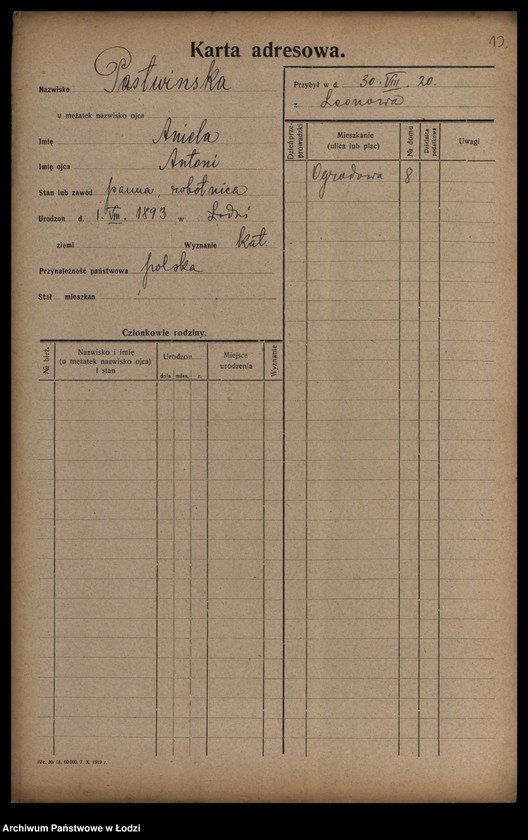 10.
Karta adresowa.
Nazwisko Pastwinska
u mężatek nazwisko ojca
Imię Aniela
Imię ojca Antoni
Stan lub zawód panna, robotnica
Urodzon d. 1. VIII. 1893 w Łodzi
ziemi Wyznanie kat.
Przynależność państwowa polska
Stał mieszkan
Członkowie rodziny.
№ bież.
Nazwisko i imię
(u mężatek nazwisko ojca)
i stan
Urodzon
dnia mies. r.
Miejsce
urodzenia
Wyznanie
Przybył w d. 30. VIII. 20.
z Leonowa
Dzień prze-
prowadzki
Mieszkanie
(ulica lub plac)
№ domu
Dzielnica
podatkowa
Uwagi
Ogrodowa 8
7. X. 1918 r.
Archiwum Państwowe w Łodzi